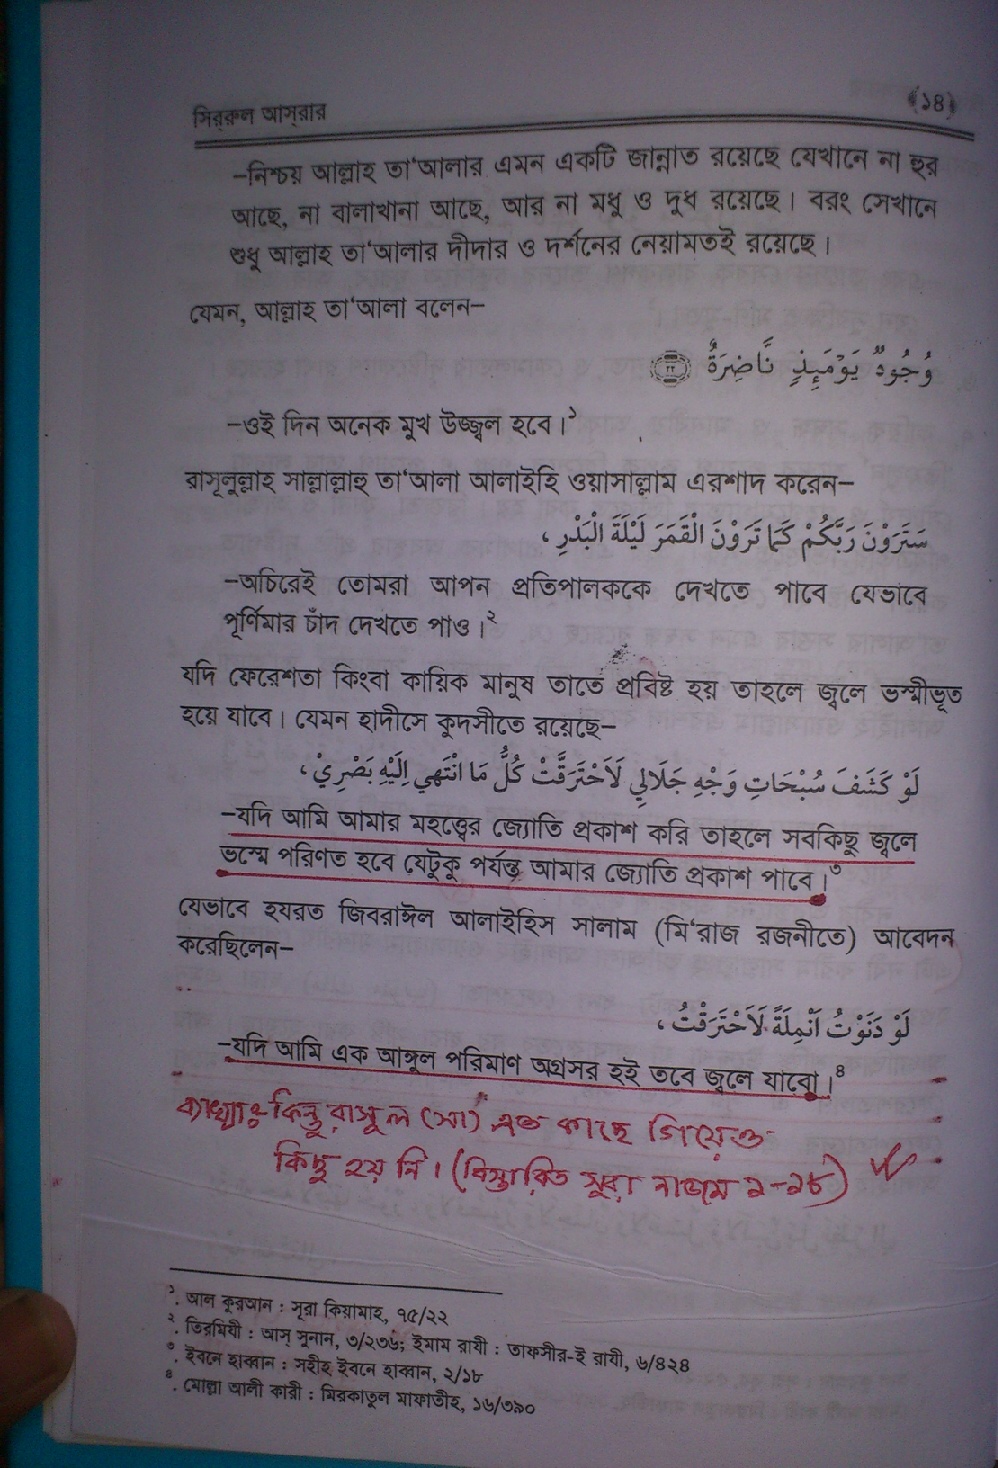 সির্‌রুল আস্‌রার
(১৪)
–নিশ্চয় আল্লাহ তা‘আলার এমন একটি জান্নাত রয়েছে যেখানে না হুর
আছে, না বালাখানা আছে, আর না মধু ও দুধ রয়েছে। বরং সেখানে
শুধু আল্লাহ তা‘আলার দীদার ও দর্শনের নেয়ামতই রয়েছে।
যেমন, আল্লাহ তা‘আলা বলেন–
وُجُوهٌ يَوْمَئِذٍ نَّاضِرَةٌ ﴿٢٢﴾
–ওই দিন অনেক মুখ উজ্জ্বল হবে।১
রাসূলুল্লাহ সাল্লাল্লাহু তা‘আলা আলাইহি ওয়াসাল্লাম এরশাদ করেন–
سَتَرَوْنَ رَبَّكُمْ كَمَا تَرَوْنَ الْقَمَرَ لَيْلَةَ الْبَدْرِ،
–অচিরেই তোমরা আপন প্রতিপালককে দেখতে পাবে যেভাবে
পূর্ণিমার চাঁদ দেখতে পাও।২
যদি ফেরেশতা কিংবা কায়িক মানুষ তাতে প্রবিষ্ট হয় তাহলে জ্বলে ভস্মীভূত
হয়ে যাবে। যেমন হাদীসে কুদসীতে রয়েছে–
لَوْ كَشَفَ سُبْحَاتِ وَجْهِ جَلَالِي لَاَحْتَرَقَتْ كُلُّ مَا انْتَهي اِلَيْهِ بَصْرِيْ،
–যদি আমি আমার মহত্ত্বের জ্যোতি প্রকাশ করি তাহলে সবকিছু জ্বলে
ভস্মে পরিণত হবে যেটুকু পর্যন্ত আমার জ্যোতি প্রকাশ পাবে।৩
যেভাবে হযরত জিবরাঈল আলাইহিস সালাম (মি‘রাজ রজনীতে) আবেদন
করেছিলেন–
لَوْ دَنَوْتُ اَنْمِلَةً لَاَحْتَرَقْتُ،
–যদি আমি এক আঙ্গুল পরিমাণ অগ্রসর হই তবে জ্বলে যাবো।৪
ব্যাখ্যাঃ কিন্তু রাসূল (সা) এত কাছে গিয়েও
কিছু হয় নি। (বিস্তারিত সূরা নাজম ১-১৮)
১. আল কুরআন : সূরা কিয়ামাহ, ৭৫/২২
২. তিরমিযী : আস্ সুনান, ৩/২৩৬; ইমাম রাযী : তাফসীর-ই রাযী, ৬/৪২৪
৩. ইবনে হাব্বান : সহীহ ইবনে হাব্বান, ২/১৮
৪. মোল্লা আলী কারী : মিরকাতুল মাফাতীহ, ১৬/৩৯০